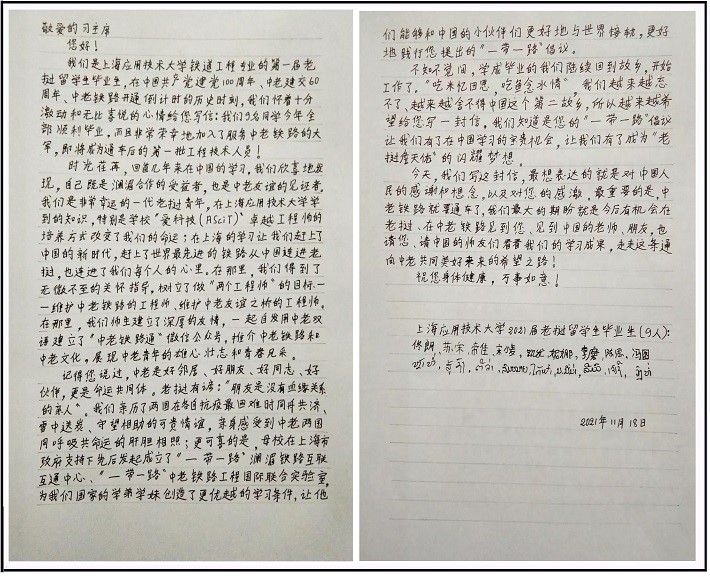 敬爱的习主席
您好！
我们是上海应用技术大学铁道工程专业的第一届老
挝留学生毕业生，在中国共产党建党100周年、中老建交60
周年、中老铁路开通倒计时的历史时刻，我们怀着十分
激动和无比喜悦的心情给您写信：我们9名同学今年全
部顺利毕业，而且非常荣幸地加入了服务中老铁路的大
军，即将成为通车后的第一批工程技术人员！
时光荏苒，回首几年来在中国的学习，我们欣喜地发
现，自己既是澜湄合作的受益者，也是中老友谊的见证者。
我们是非常幸运的一代老挝青年，在上海应用技术大学学
到的知识，特别是学校“爱科技(ASCIIT)”卓越工程师的
培养方式改变了我们的命运；在上海的学习让我们赶上了
中国的新时代，赶上了世界最先进的铁路从中国连进老
挝，也连进了我们每个人的心里。在那里，我们得到了
无微不至的关怀指导，树立了做“两个工程师”的目标—
—维护中老铁路的工程师、维护中老友谊之桥的工程师。
在那里，我们师生建立了深厚的友情，一起自发用中老双
语建立了“中老铁路通”微信公众号，推介中老铁路和
中老文化，展现中老青年的雄心壮志和青春风采。
记得您说过，中老是好邻居、好朋友、好同志、好
伙伴，更是命运共同体。老挝有谚：“朋友是没有血缘关系
的亲人”。我们亲历了两国在各自抗疫最困难时同舟共济、
雪中送炭、守望相助的可贵情谊，亲身感受到中老两国
同呼吸共命运的肝胆相照；更可喜的是，母校在上海市
政府支持下先后发起成立了“一带一路”澜湄铁路互联
互通中心、“一带一路”中老铁路工程国际联合实验室，
为我们国家的学弟学妹创造了更优越的学习条件，让他
们能够和中国的小伙伴们更好地与世界接轨，更好
地践行您提出的“一带一路”倡议。
不知不觉间，学成毕业的我们陆续回到故乡，开始
工作了。“吃米忆田恩，吃鱼念水情”，我们越来越忘
不了、越来越舍不得中国这个第二故乡，所以越来越希
望给您写一封信。我们知道是您的“一带一路”倡议
让我们有了在中国学习的宝贵机会，让我们有了成为“老
挝詹天佑”的闪耀梦想。
今天，我们写这封信，最想表达的就是对中国人
民的感谢和想念，以及对您的感激。最重要的是，中
老铁路就要通车了，我们最大的期盼就是今后有机会在
老挝、在中老铁路见到您、见到中国的老师、朋友，也
请您、请中国的师友们看看我们的学习成果，走走这条通
向中老共同美好未来的希望之路！
祝您身体健康，万事如意！
上海应用技术大学2021届老挝留学生毕业生(9人)：
2021年11月18日